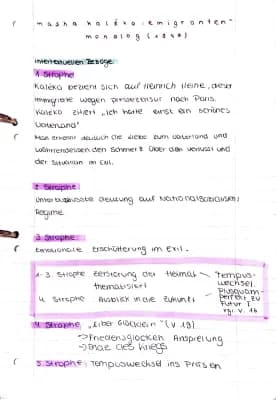 mascha kaléko: emigranten-
monolog (1945)
intertextuellen Bezüge:
1. Strophe
Kaléko bezieht sich auf Heinrich Heine, dieser
immigrierte wegen Pressezensur nach Paris.
Kaléko zitiert „Ich hatte einst ein schönes
Vaterland"
Man erkennt deutlich die Liebe zum Vaterland und
währenddessen den Schmerz über den Verlust und
der Situation im Exil.
2. Strophe
Deutung auf Nationalsozialismus/
Regime
3. Strophe:
Emotionale Erschütterung im Exil.
1-3. Strophe Zerstörung der Heimat
thematisiert
4. Strophe Ausblick in die Zukunft
Tempus-
wechsel
Plusquam-
perfekt zu
Futur I
vgl. V. 16
4. Strophe „Liber Glöcklein" (V. 19)
→Friedensglocken Anspielung
→Ende des Kriegs
5. Strophe: Tempuswechsel ins Präsen